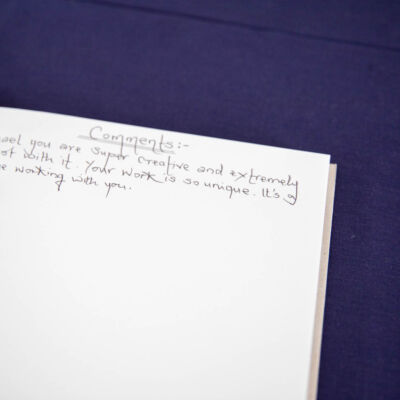 Comments:-
ael you are super creative and extremely
with it. Your work is so unique. It's a
working with you.